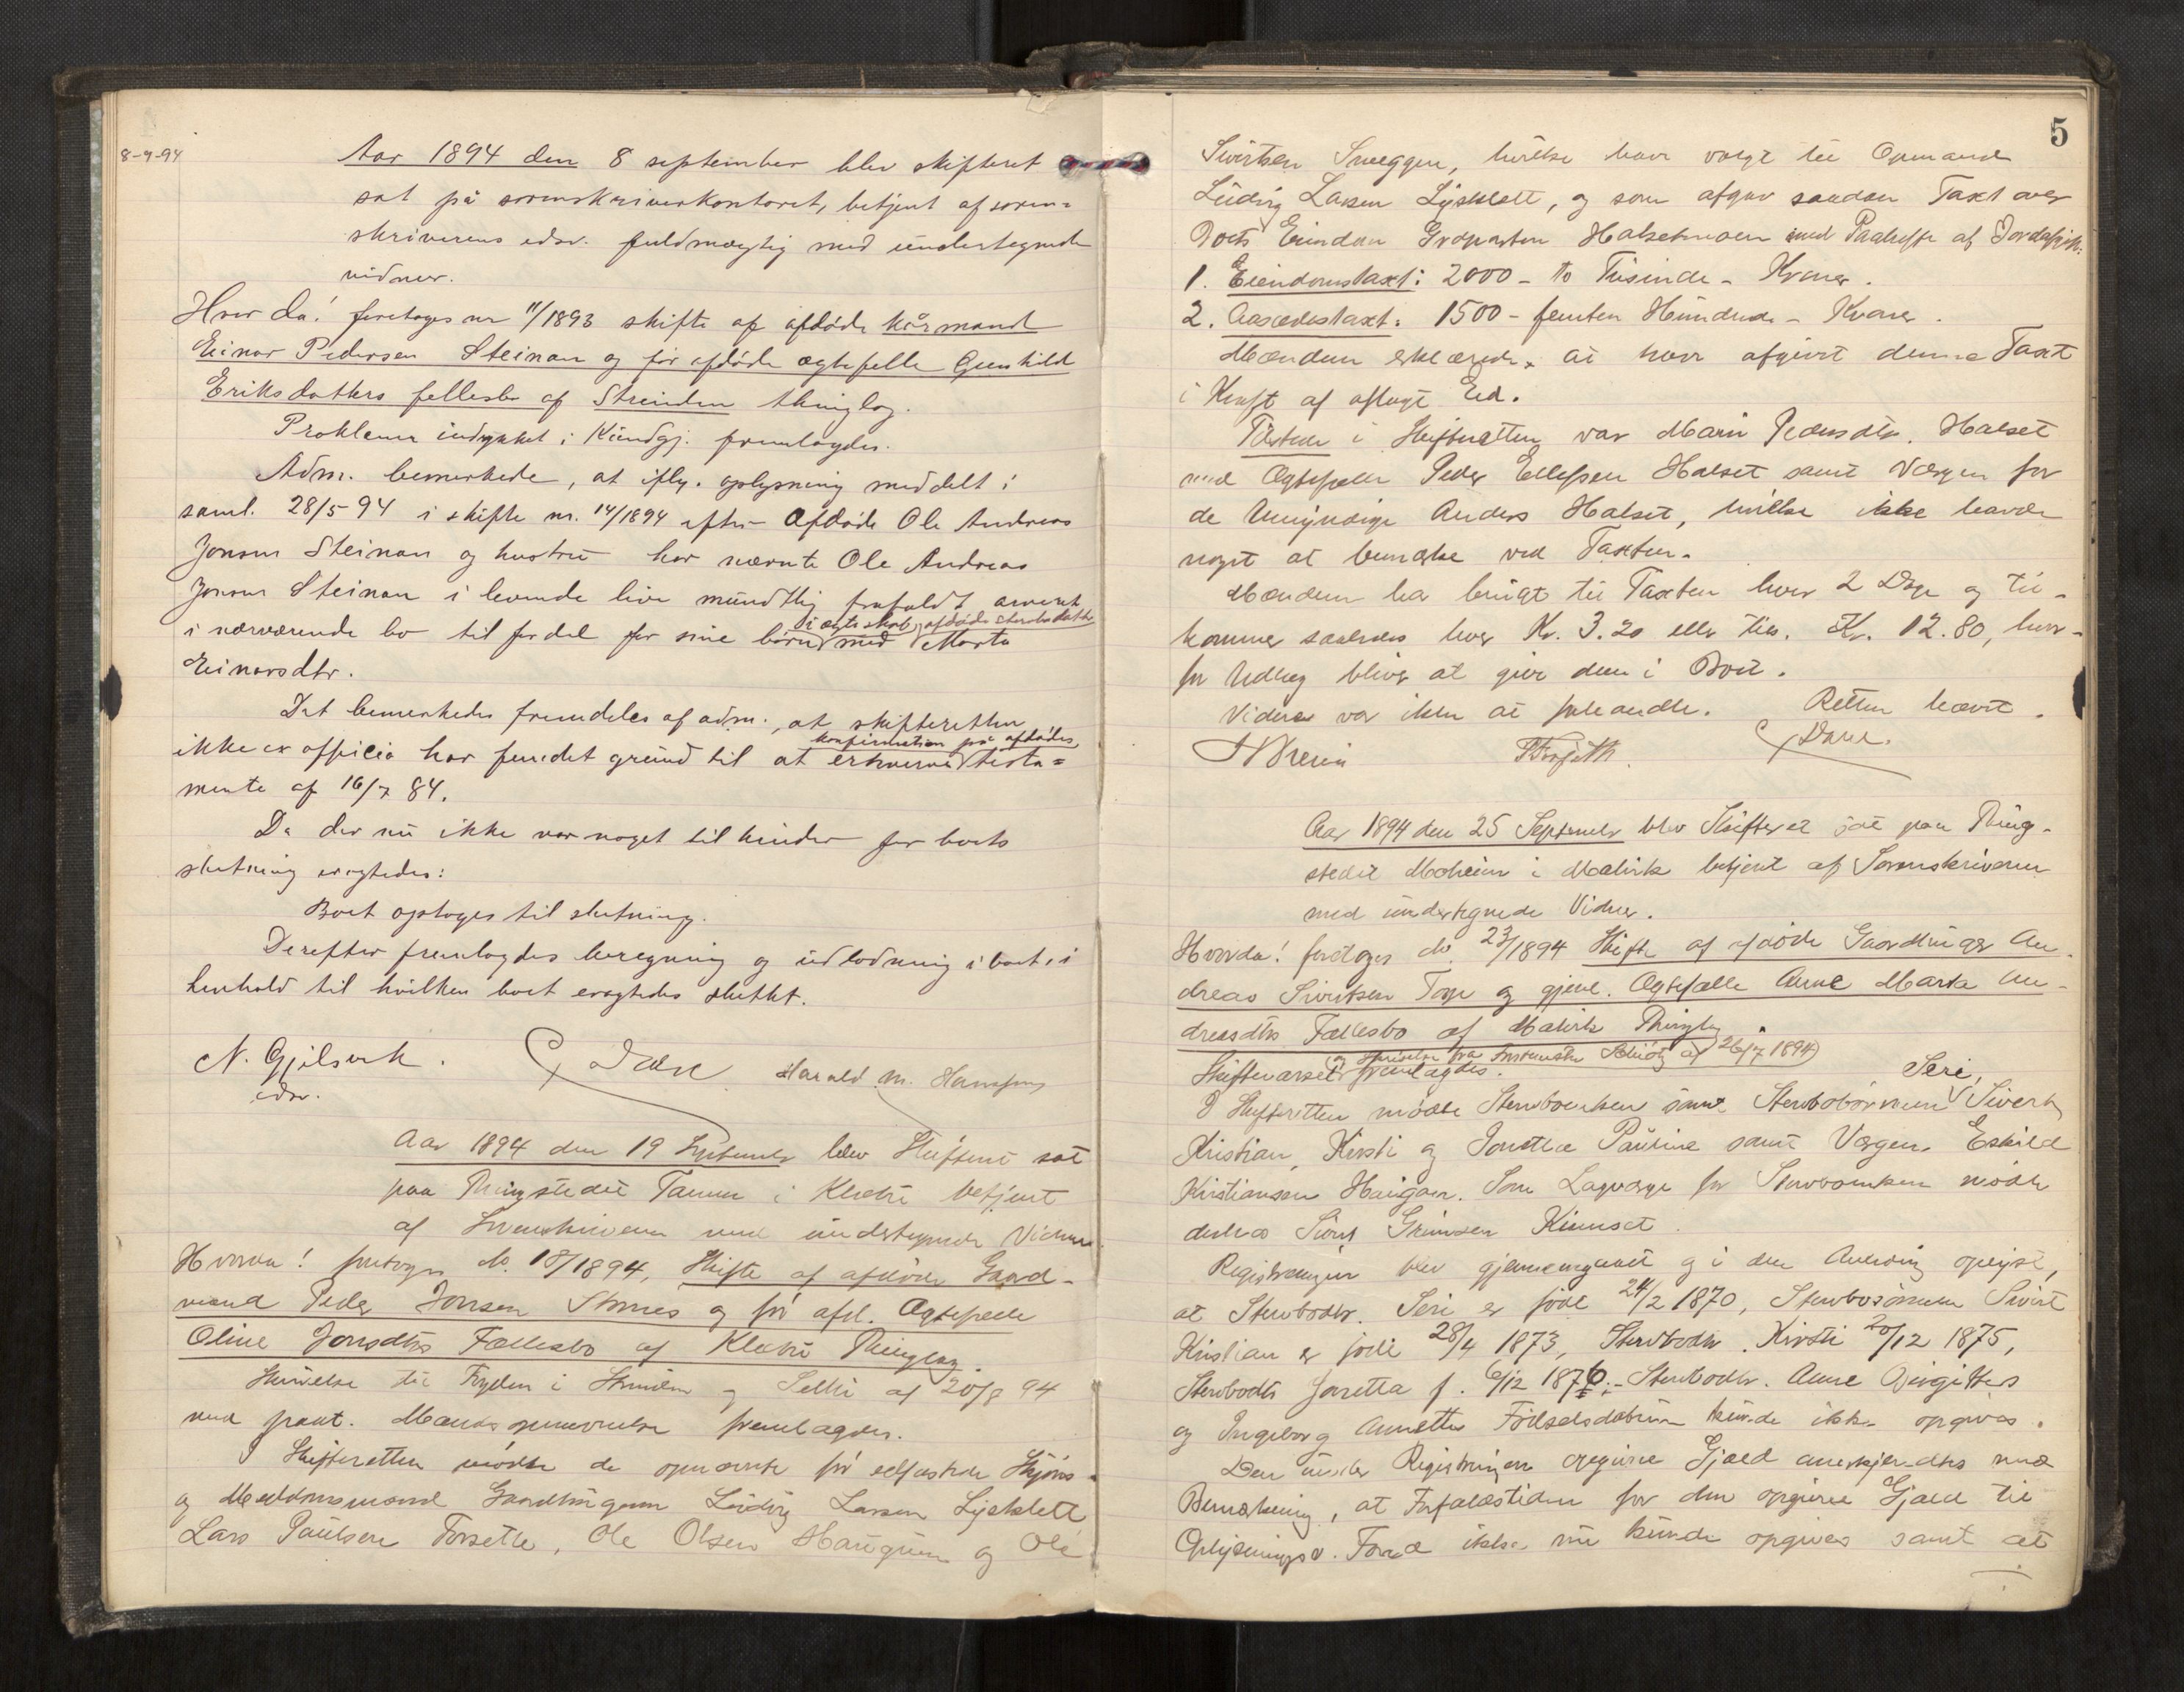 8-9-94
Aar 1894 den 8 september blev skifteret
sat på sorenskriverkontoret, betjent af soren=
skriverens edsv. fuldmægtig med undertegnede
vidner.
Hvor da! foretoges nr 11/1893 skifte af afdøde kårmand
Einar Pedersen Steinan og før afdøde ægtefelle Gunhild
Eriksdatters fellesbo af Strinden thinglag.
Proklama indrykket i Kundgj. fremlagdes.
Adm. bemerkede, at iflg. oplysning meddelt i
saml. 28/5-94 i skifte nr. 14/1894 efter afdøde Ole Andreas
Jonsen Steinan og hustru har nævnte Ole Andreas
Jonsen Steinan i levende live mundtlig frafaldt arveret
i ægteskab afdøde sterbodatter
i nærværende bo til fordel for sine børn med Marta
Einarsdtr.
Det bemerkedes fremdeles af adm., at skifteretten
konfirmation på afdødes
ikke ex officio har fundet grund til at erhverve testa=
mente af 16/7 84.
Da der nu ikke var noget til hinder for boets
slutning eragtedes:
Boet optoges til slutning.
Derefter fremlagdes beregning og udlodning i boet, i
henhold til hvilken boet eragtedes sluttet.
N. Gjelsvik. Dahl Harald M. Hansen
edsv.
Aar 1894 den 19 September blev Skifteret sat
paa Thingstedet Tanem i Klæbu betjent
af Sorenskriveren med undertegnede Vidner
Hvorda! foretoges No. 18/1894, Skifte af afdøde Gaard-
mand Peder Jonsen og før afd. Ægtefælle
Oline Jonsdtrs Fællesbo af Klæbu Thinglag.
Skrivelse til Fogden i Strinden og Selbu af 20/8 94
med paat. Mandsopnævnelse fremlagdes.
I Skifteretten mødte de opnævnte før edfæstede Skjøns-
og Meddomsmænd Gaardbrugerne Ludvig Larsen Lysklett
Lars Paulsen Forsetle, Ole Olsen Haugum og Ole
5
Sivertsen, hvilke have valgt til Opmand
Ludvig Larsen Lysklett, og som afgav saadan Taxt over
Boets Eiendom Grdparten Halsetmoen med Paahefte af Jordafgift:
1. Eiendomstaxt: 2000 - to Tusinde - Kroner.
2. Aasædestaxt: 1500 - femten Hundrede - Kroner.
Mændene erklærede, at have afgivet denne Taxt
i Kraft af aflagt Ed.
Tilstede i Skifteretten var Marit Pedersdtr. Halset
med Ægtefælle Peder Ellefsen Halset samt Værgen for
de Umyndige Anders Halset, hvilke ikke havde
noget at bemærke ved Taxten.
Mændene har brugt til Taxten hver 2 Dage og til-
kommer saaledes hver Kr. 3.20 eller tils. Kr. 12.80, hvor-
for Udlæg bliver at give dem i Boet.
Videre var ikke at fohandle. Retten hævet.
Dahl.
Aar 1894 den 25 September blev Skifteret sat paa Thing-
stedet Moheim i Malvik betjent af Sorenskriveren
med undertegnede Vidner.
Hvorda! foretoges No. 23/1894 Skifte af afdøde Gaardbruger An-
dreas Sivertsen og gjenl. Ægtefælle Anne Marta An-
dreasdtrs Fællesbo af Malvik Thinglag.
og Skrivelse fra af 26/7 1894
Skiftevarslet fremlagdes.
Seri,
I Skifteretten mødte Sterboenken samt Sterbobørnene Sivert
Kristian, Kirsti og Jonetta Pauline samt Værgen Eskild
Kristiansen Haugan. Som Lagværge for Sterboenken mødte
desuden Sivert Grimsen Kinnset.
Registreringen blev gjennemgaaet og i den Anledning oplyst,
at Sterbodtr. Seri er født 24/2 1870, Sterbosønnen Sivert
Kristian er født 28/4 1873, Sterbodtr. Kirsti 20/12 1875,
Sterbodtr Jonetta f. 6/12 1876;- Sterbodtr. Anne Birgittes
og Ingeborg Annettes Fødselsdatum kunde ikke opgives.
Den under Registreringen opgivne Gjæld anerkjendtes med
Bemærkning, at Forfaldstiden for den opgivne Gjæld til
Oplysningsv. Fond ikke nu kunde opgives samt at